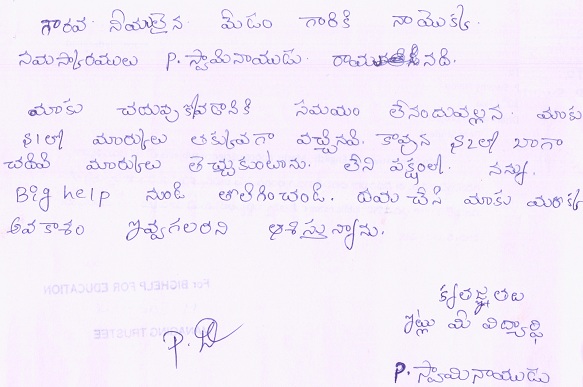 గౌరవ నీయులైన మేడం గారికి నాయొక్క
నమస్కారములు P. స్వామినాయుడు. రాయునది.
మాకు చదువుకోవడానికి సమయం లేనందువల్లన మాకు
S1లో మార్కులు తక్కువగా వచ్చినవి. కావున S2లో బాగా
చదివి మార్కులు తెచ్చుకుంటాను. లేని పక్షంలో. నన్ను.
Big help నుండి తొలగించండి. దయచేసి మాకు మరొక
అవకాశం ఇవ్వగలరని ఆశిస్తున్నాను.
కృతజ్ఞతలు
ఇట్లు మీ విద్యార్థి
P. స్వామినాయుడు
For BIGHELP FOR EDUCATION
MANAGING TRUSTEE